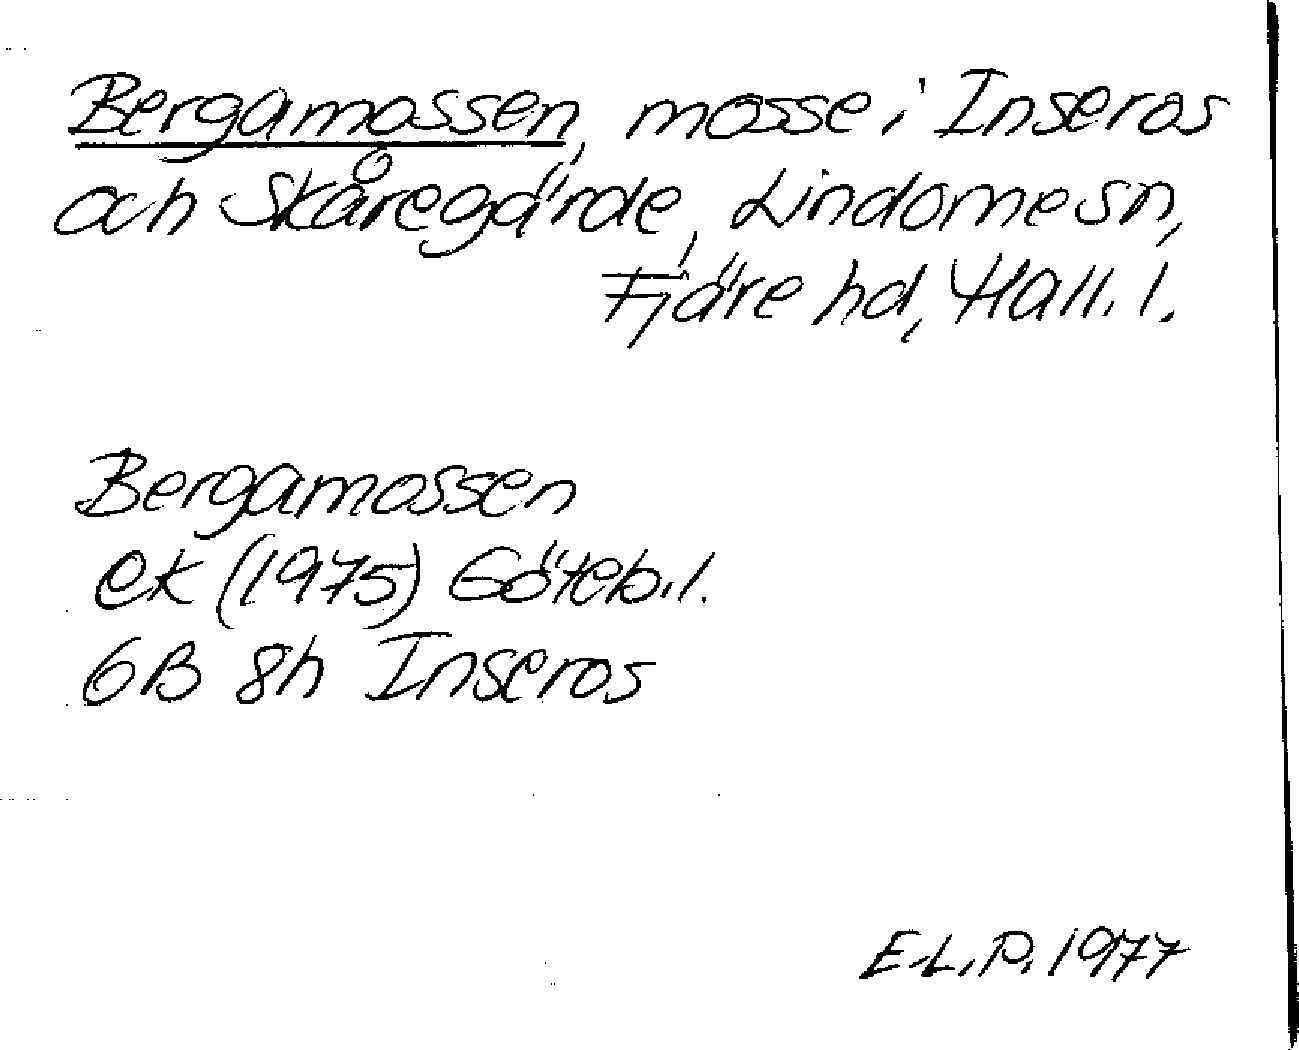 Bergamossen, mosse i Inseros
och Skåregärde, Lindome sn,
Fjäre hd, Hall. l.
Bergamossen
ek (1975) Göteb. l.
6B 8h Inseros
E-L. P. 1977